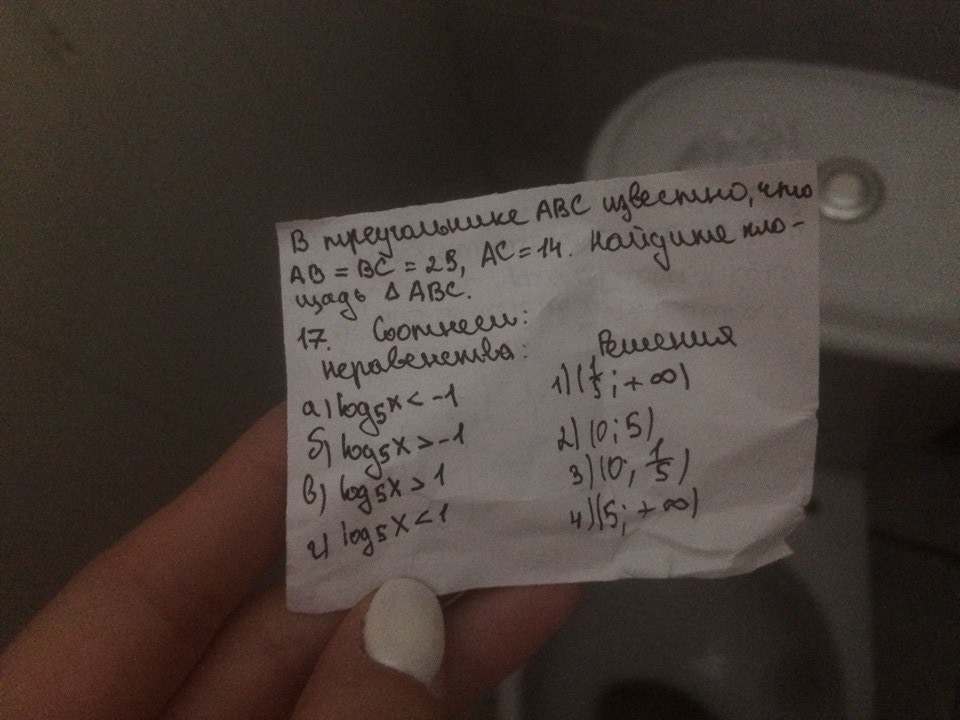 В треугольнике ABC известно, что
AB = BC = 25, AC = 14. Найдите пло-
щадь Δ ABC.
17. Соотнесем:
неравенства: Решения
а) log₅x < -1 1) (1/5; +∞)
б) log₅x > -1 2) (0; 5)
в) log₅x > 1 3) (0; 1/5)
г) log₅x < 1 4) (5; +∞)